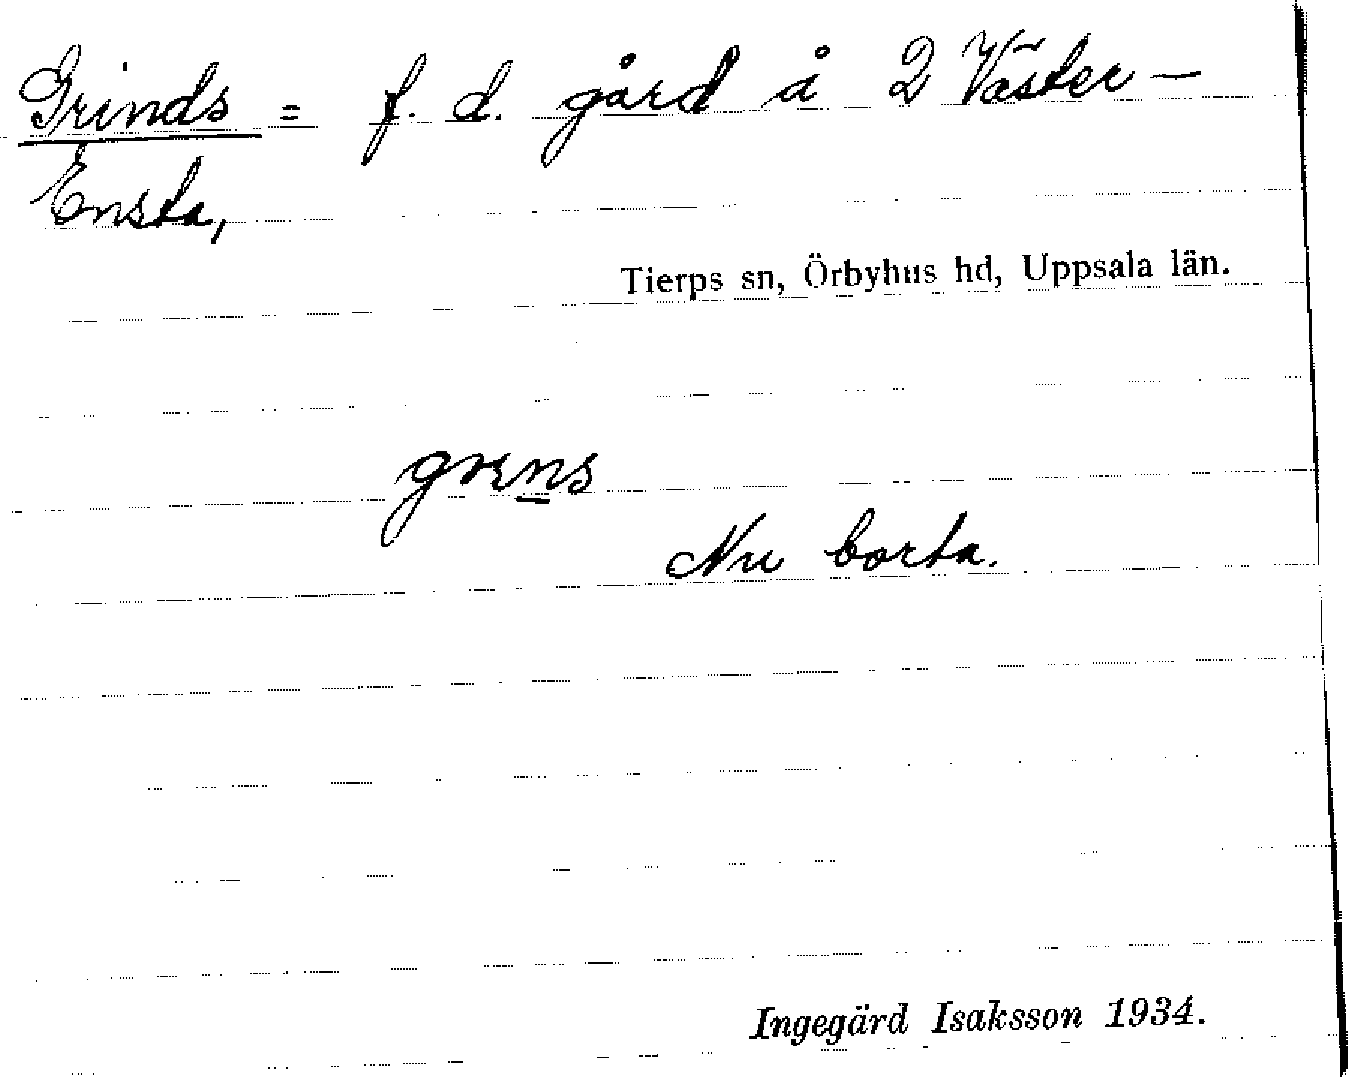 Grinds = f. d. gård å 2 Väster-
Ensta,
Tierps sn, Örbyhus hd, Uppsala län.
Nu borta.
Ingegärd Isaksson 1934.